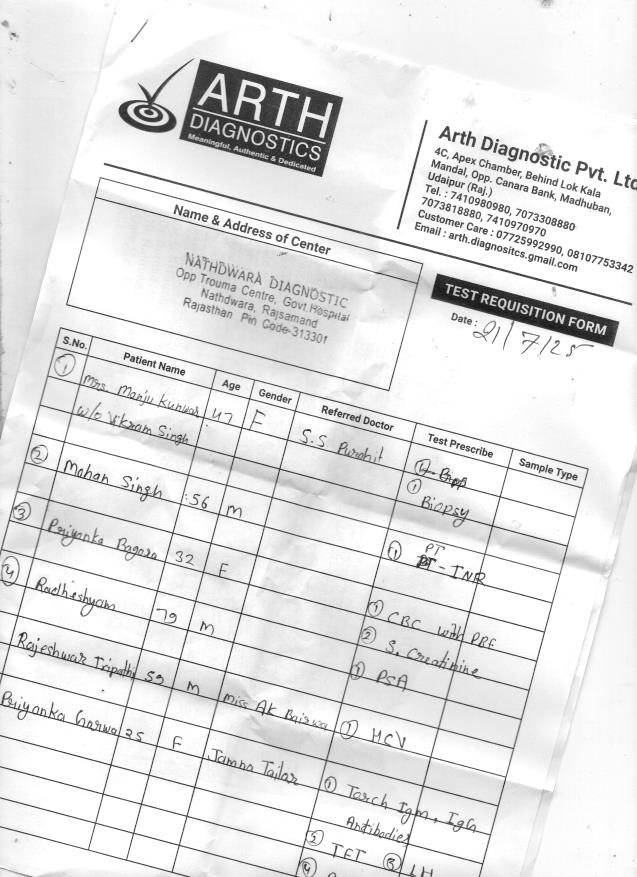 ARTH
DIAGNOSTICS
Meaningful, Authentic & Dedicated
Arth Diagnostic Pvt. Ltd
4C, Apex Chamber, Behind Lok Kala
Mandal, Opp. Canara Bank, Madhuban,
Udaipur (Raj.)
Tel. : 7410980980, 7073308880
7073818880, 7410970970
Customer Care : 07725992990, 08107753342
Email : arth.diagnositcs.gmail.com
Name & Address of Center
NATHDWARA DIAGNOSTIC
Opp Trouma Centre, Govt. Hospital
Nathdwara, Rajsamand
Rajasthan Pin Code-313301
TEST REQUISITION FORM
Date : 21/7/25
S.No. Patient Name Age Gender Referred Doctor Test Prescribe Sample Type
1 Mrs Manju Kunwar 47 F S.S. Purohit
w/o Vikram Singh 1 Biopsy
2 Mohan Singh 56 M 1 PT-INR
3 Priyanka Bagora 32 F 1 CBC with PBF
2 S. Creatinine
4 Radheshyam 79 M 1 PSA
Rajeshwar Tripathi 59 M Miss Ak Bairwa 1 HCV
Priyanka 25 F Jamna Tailar 1 Torch Igm, IgG
Antibodies
2 TFT 3 LH
4